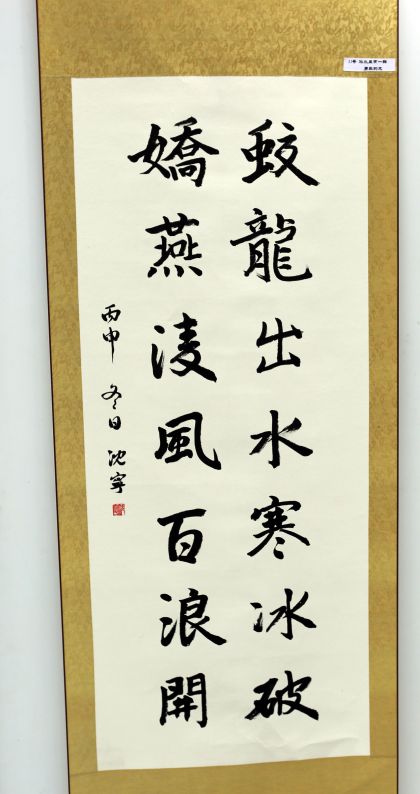 蛟龍出水寒冰破
嬌燕淩風百浪開
丙申 冬日 沈宇